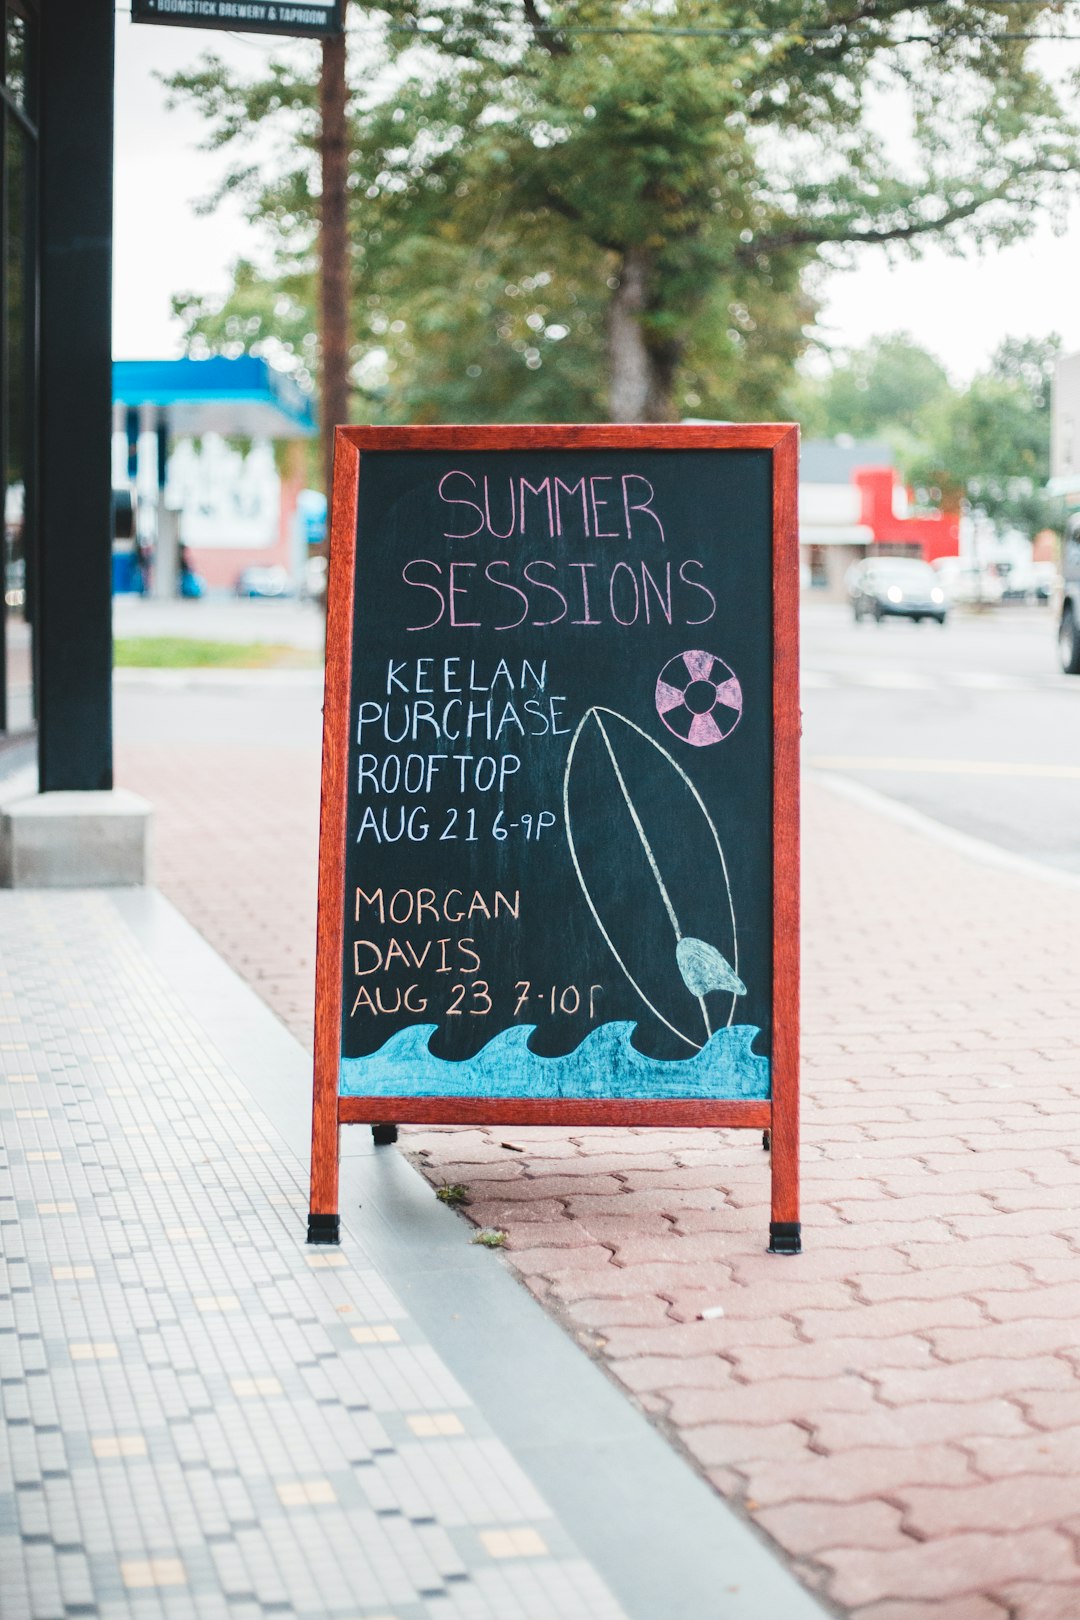 • BOOMSTICK BREWERY & TAPROOM
SUMMER
SESSIONS
KEELAN
PURCHASE
ROOFTOP
AUG 21 6-9P
MORGAN
DAVIS
AUG 23 7-10P